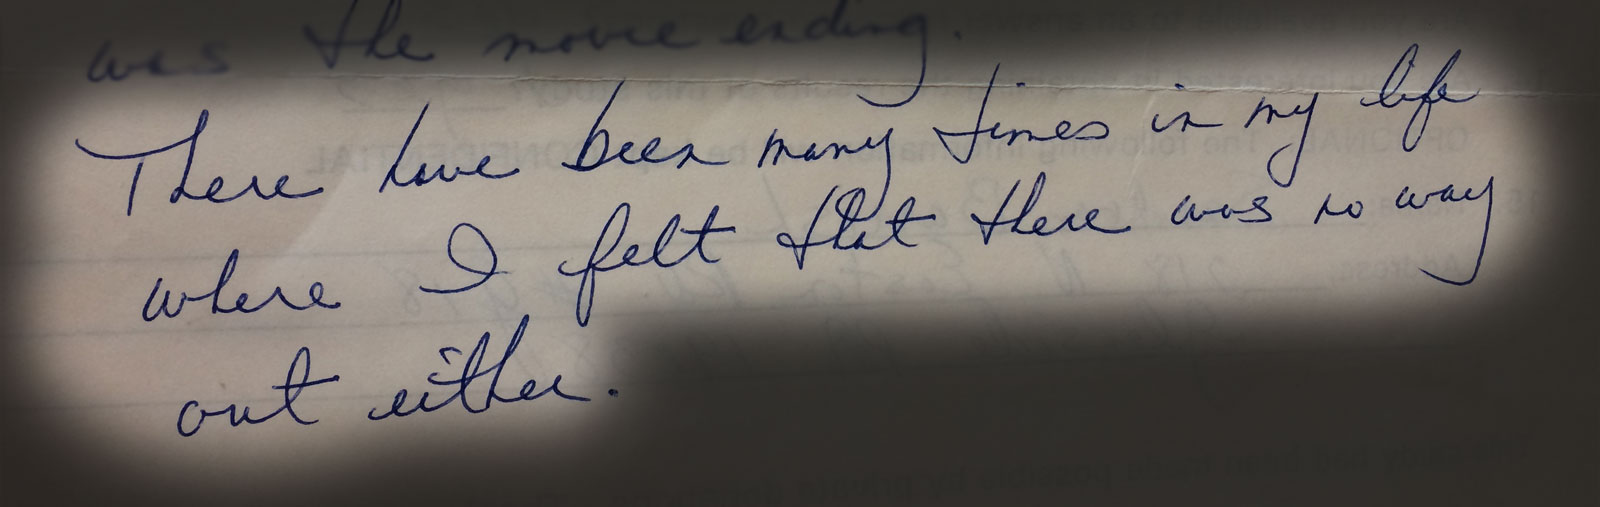 was the movie ending.
There have been many times in my life
where I felt that there was no way
out either.